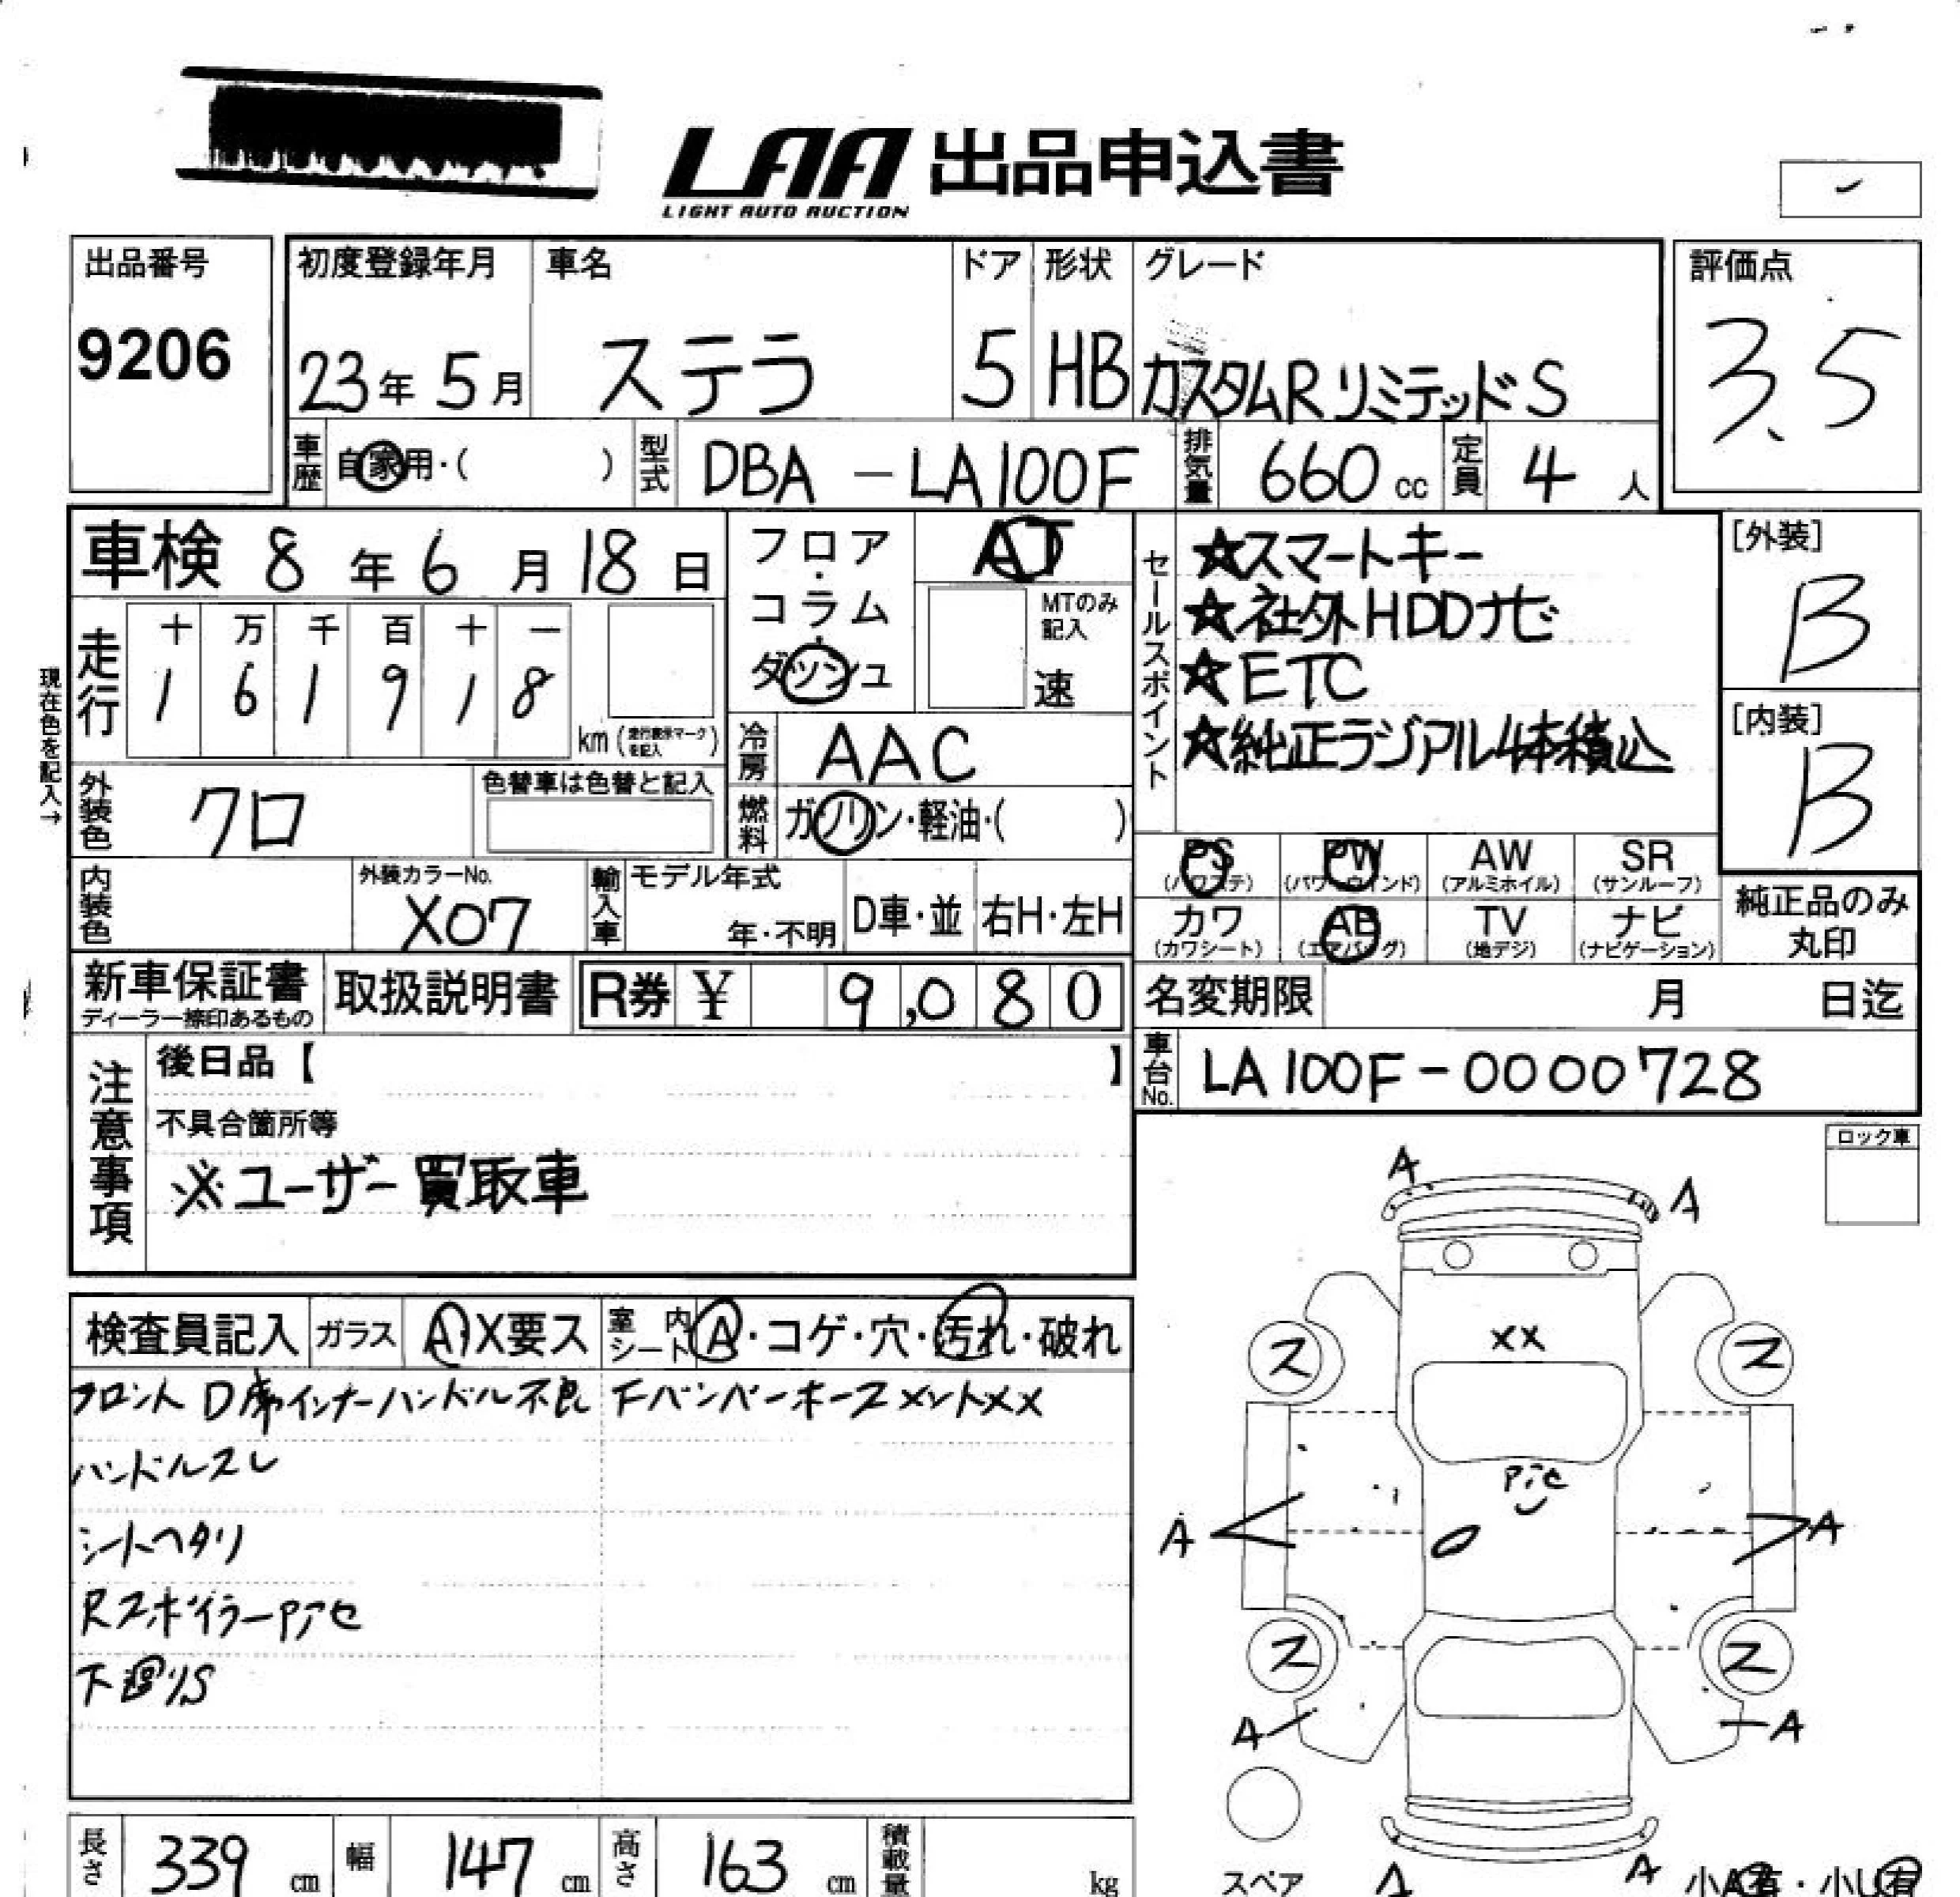 LAA 出品申込書
LIGHT AUTO AUCTION
出品番号
9206
初度登録年月 車名 ドア 形状 グレード
23年 5月 ステラ 5 HB カスタムRリミテッドS
評価点
3.5
車歴 自家用・( ) 型式 DBA-LA100F 排気量 660cc 定員 4人
車検 8年6月18日
フロア・コラム・ダッシュ
AT
MTのみ記入
速
現在色を記入→
走行 十 万 千 百 十 一
1 6 1 9 1 8
km(走行表示マークを記入)
冷房 AAC
燃料 ガソリン・軽油・( )
外装色 クロ
色替車は色替と記入
内装色
外装カラーNo.
X07
輸入車 モデル年式
年・不明 D車・並 右H・左H
セールスポイント
☆スマートキー
☆社外HDDナビ
☆ETC
☆純正ラジアル4本積込
[外装]
B
[内装]
B
PS PW AW SR
(パワステ) (パワーウインド) (アルミホイル) (サンルーフ)
カワ AB TV ナビ
(カワシート) (エアバッグ) (地デジ) (ナビゲーション)
純正品のみ
丸印
新車保証書
ディーラー捺印あるもの
取扱説明書 R券 ¥ 9,080
名変期限 月 日迄
車台No. LA100F-0000728
注意事項
後日品【 】
不具合箇所等
※ユーザー買取車
ロック車
検査員記入 ガラス A・X要ス 室内シート A・コゲ・穴・汚れ・破れ
フロント D席インナーハンドル不良 FバンパーホースメントXX
ハンドルスレ
シートヘタリ
Rスポイラーpハセ
下廻りS
A A
XX
ス ス
pハセ
A A
ス ス
A A
スペア
A A
小A有・小U有
長さ 339cm 幅 147cm 高さ 163cm 積載量 kg